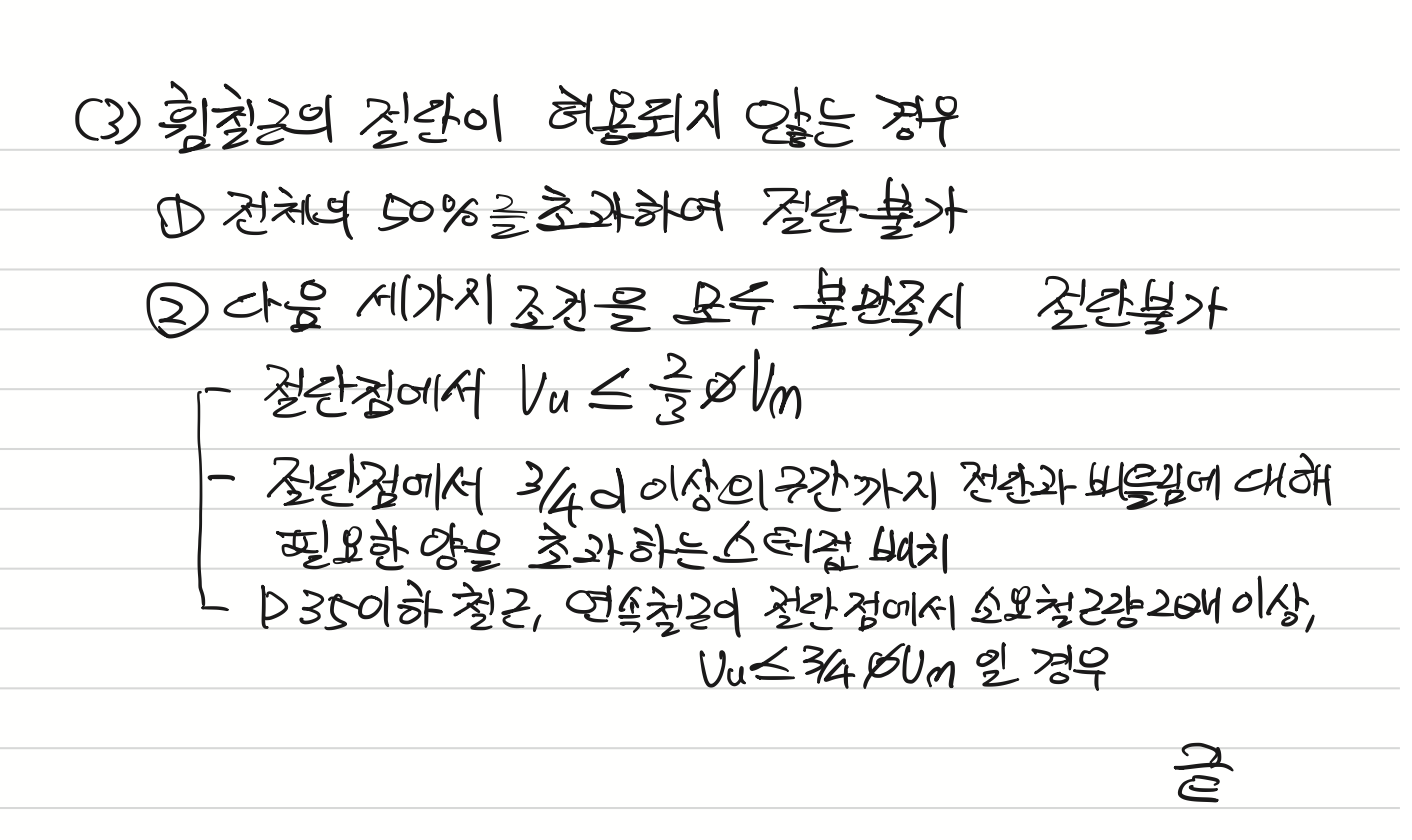 (3) 휨철근의 절단이 허용되지 않는 경우
① 전체의 50%를 초과하여 절단불가
② 다음 세가지 조건을 모두 불만족시 절단불가
- 절단점에서 Vu ≤ 2/3 ∅Vn
- 절단점에서 3/4d 이상의 구간까지 전단과 비틀림에 대해
필요한 양을 초과하는 스터럽 배치
- D35이하 철근, 연속철근이 절단점에서 소요철근량 2배 이상,
Vu ≤ 3/4 ∅Vn 일 경우
끝